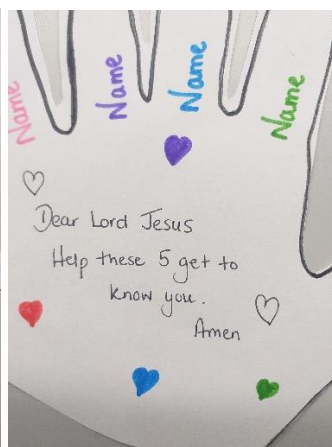 Name
Name
Name
Name
Dear Lord Jesus
Help these 5 get to
know you.
Amen